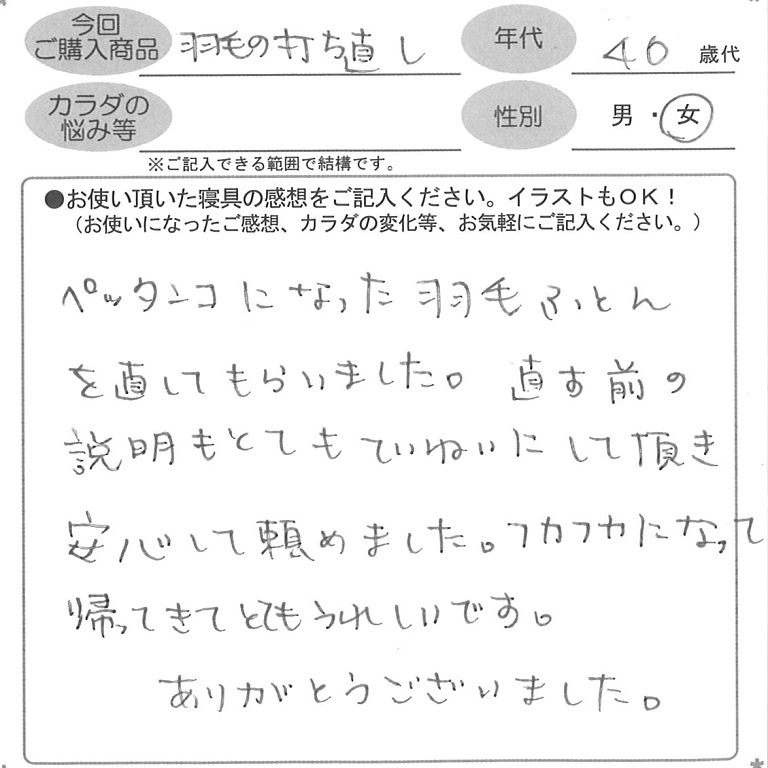 今回ご購入商品 羽毛の打ち直し 年代 40 歳代
カラダの悩み等 性別 男・女
※ご記入できる範囲で結構です。
●お使い頂いた寝具の感想をご記入ください。イラストもOK!
(お使いになったご感想、カラダの変化等、お気軽にご記入ください。)
ペッタンコになった羽毛ふとん
を直してもらいました。直す前の
説明もとてもていねいにして頂き
安心して頼めました。フカフカになって
帰ってきてとてもうれしいです。
ありがとうございました。